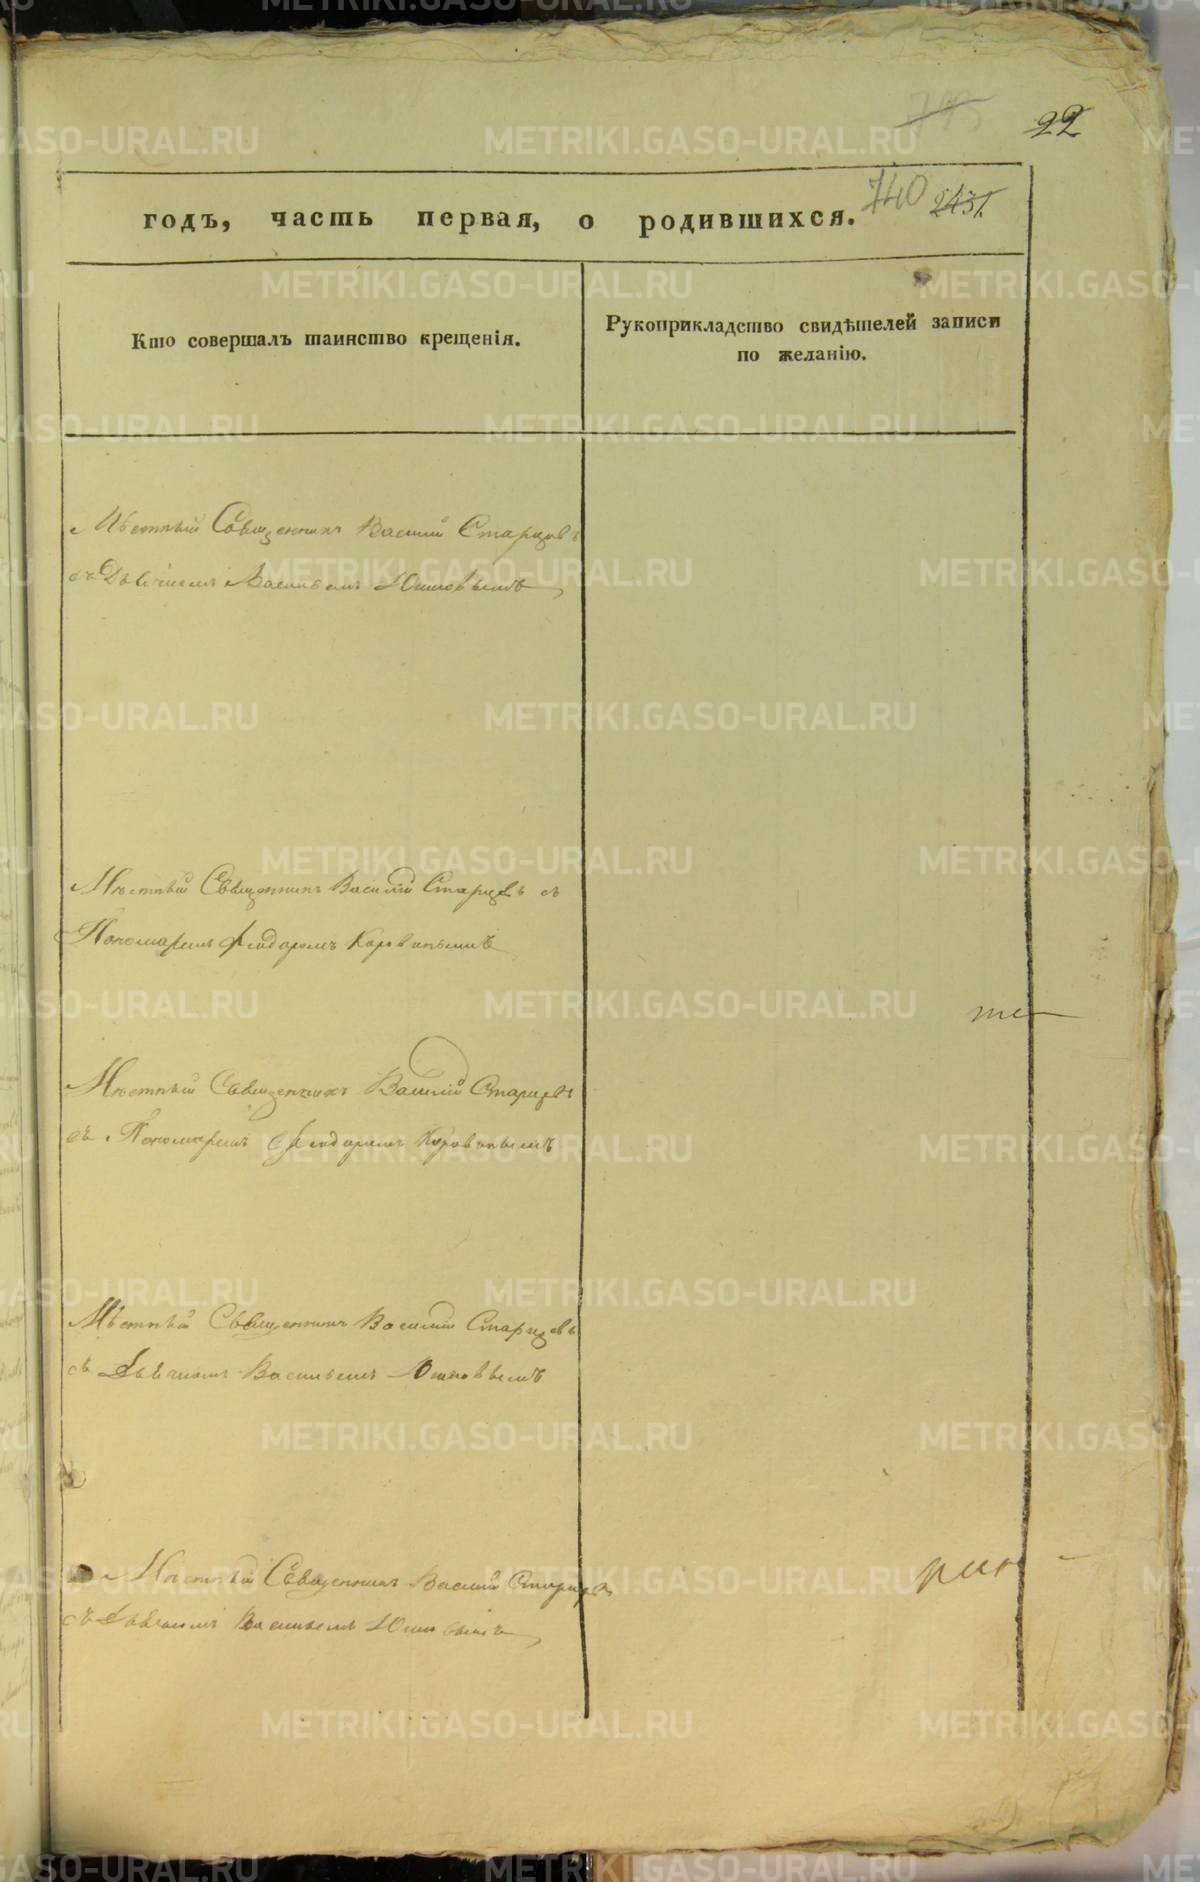 22
740 2431.
годъ, часть первая, о родившихся.
Кто совершалъ таинство крещенія.
Рукоприкладство свидѣтелей записи
по желанію.
Мѣстный Священникъ Василій Старцовъ
съ Дьячкомъ Васильемъ Юшковымъ
Мѣстный Священникъ Василій Старцовъ съ
Пономаремъ Феодоромъ Коровинымъ
Мѣстный Священникъ Василій Старцевъ
съ Пономаремъ Феодоромъ Коровинымъ
Мѣстный Священникъ Василій Старцовъ
съ Дьячкомъ Васильемъ Юшковымъ
Мѣстный Священникъ Василій Старцов
съ Дьячкомъ Васильемъ Юшковымъ
METRIKI.GASO-URAL.RU